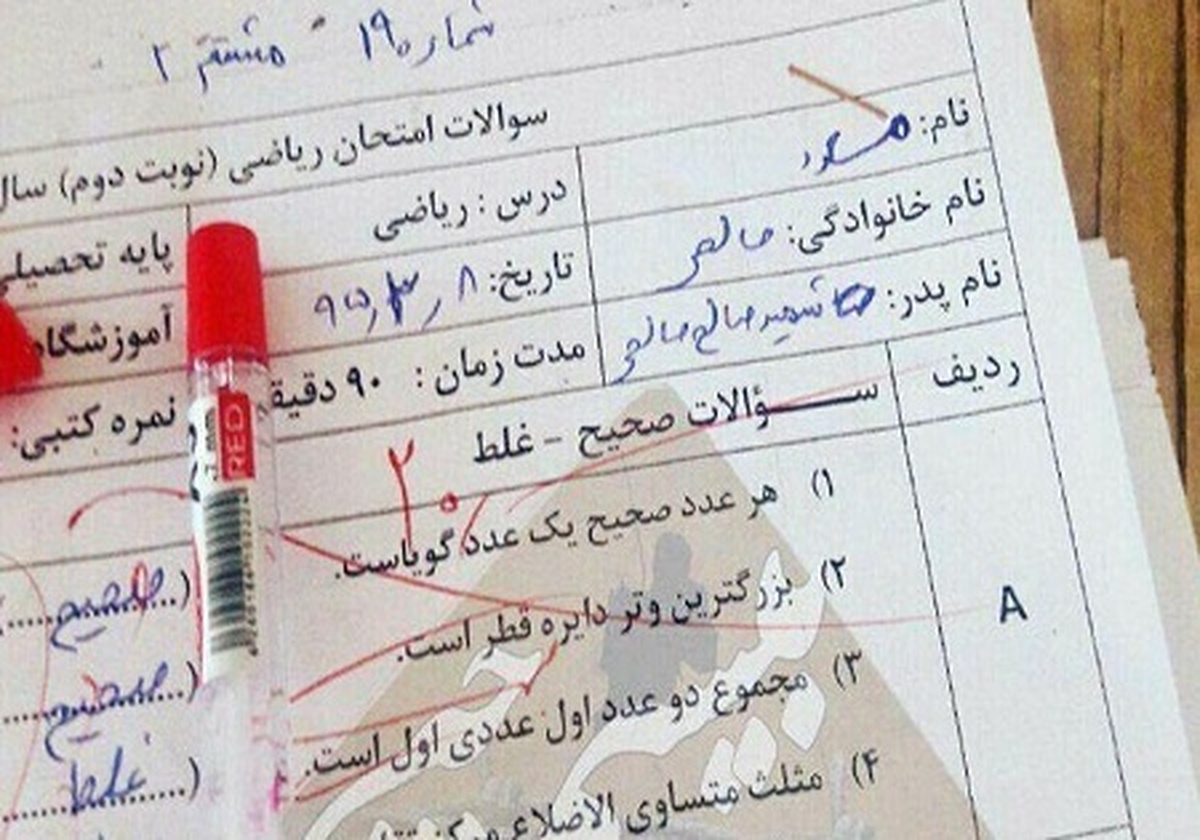 شماره ۱۹
سوالات امتحان ریاضی (نوبت دوم) سال
نام:
درس : ریاضی
پایه تحصیلی
نام خانوادگی: صالحی
تاریخ: ۹۵٫۳٫۸
آموزشگاه
نام پدر: شهید صالح صالحی
مدت زمان : ۹۰ دقیقه
نمره کتبی:
ردیف
سؤالات صحیح - غلط
۲۰
RED
A
۱) هر عدد صحیح یک عدد گویاست.
(...صحیح
۲) بزرگترین وتر دایره قطر است.
(...صحیح
۳) مجموع دو عدد اول عددی اول است.
(...غلط
۴) مثلث متساوی الاضلاع مرکز